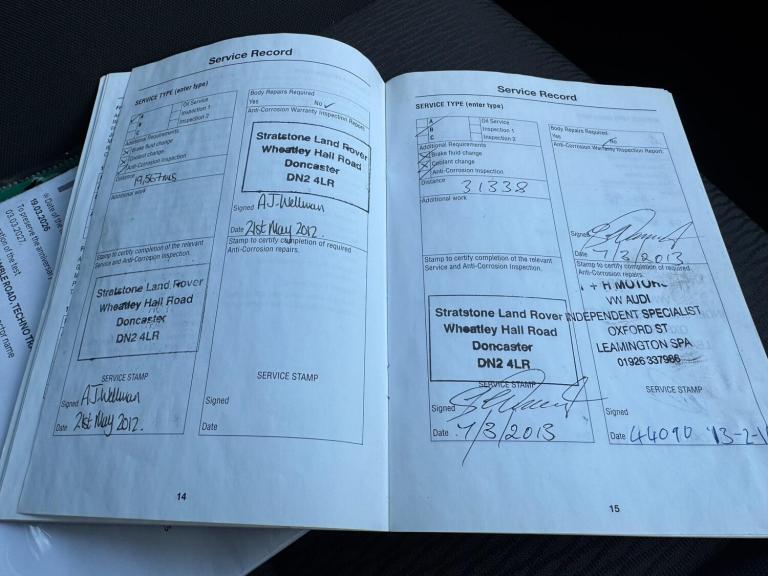 19.03.2026
03.03.2027.
Service Record
SERVICE TYPE (enter type)
A
Oil Service
B
Inspection 1
C
Inspection 2
Additional Requirements
Brake fluid change
Coolant change
Anti-Corrosion Inspection
Distance 19,567mls
Additional work
Stamp to certify completion of the relevant
Service and Anti-Corrosion Inspection.
Stratstone Land Rover
Wheatley Hall Road
Doncaster
DN2 4LR
SERVICE STAMP
Signed A.J.Wellman
Date 21st May 2012.
Body Repairs Required
Yes No ✓
Anti-Corrosion Warranty Inspection Report
Stratstone Land Rover
Wheatley Hall Road
Doncaster
DN2 4LR
Signed A.J.Wellman
Date 21st May 2012.
Stamp to certify completion of required
Anti-Corrosion repairs.
SERVICE STAMP
Signed
Date
14
Service Record
SERVICE TYPE (enter type)
A
Oil Service
B
Inspection 1
C
Inspection 2
Additional Requirements
Brake fluid change
Coolant change
Anti-Corrosion Inspection
Distance 31338
Additional work
Stamp to certify completion of the relevant
Service and Anti-Corrosion Inspection.
Stratstone Land Rover
Wheatley Hall Road
Doncaster
DN2 4LR
SERVICE STAMP
Signed
Date 7/3/2013
Body Repairs Required
Yes No
Anti-Corrosion Warranty Inspection Report
Signed
Date 7/3/2013
Stamp to certify completion of required
Anti-Corrosion repairs.
+ H MOTORS
VW AUDI
INDEPENDENT SPECIALIST
OXFORD ST
LEAMINGTON SPA
01926 337966
SERVICE STAMP
Signed
Date 44090 13-2-1
15